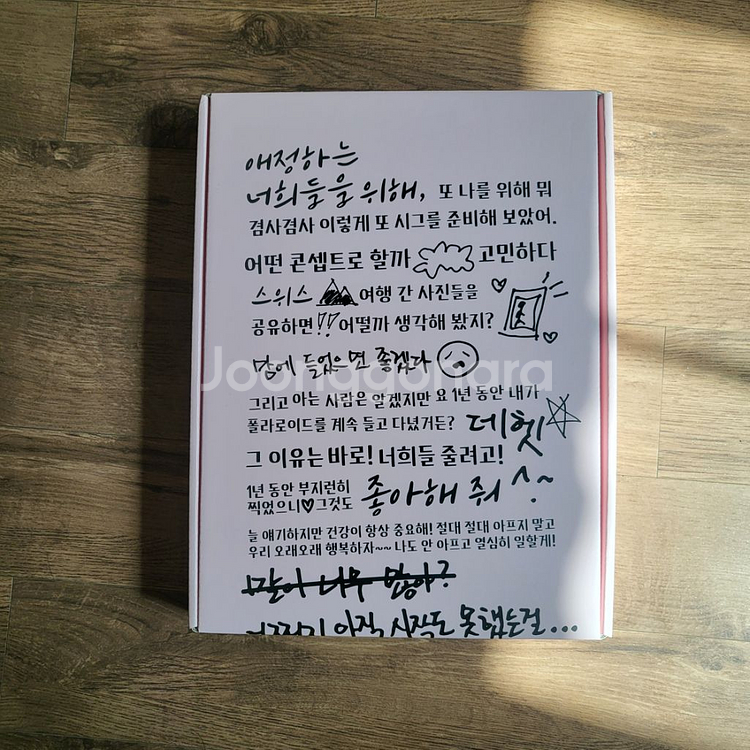 애정하는
너희들을 위해, 또 나를 위해 뭐
겸사겸사 이렇게 또 시그를 준비해 보았어.
어떤 콘셉트로 할까 고민하다
스위스 여행 간 사진들을
공유하면!! 어떨까 생각해 봤지?
맘에 들었으면 좋겠다
Joonggonara
그리고 아는 사람은 알겠지만 요 1년 동안 내가
폴라로이드를 계속 들고 다녔거든? 데헷
그 이유는 바로! 너희들 줄려고!
1년 동안 부지런히
찍었으니♥그것도 좋아해 줘 ^.~
늘 얘기하지만 건강이 항상 중요해! 절대 절대 아프지 말고
우리 오래오래 행복하자~~ 나도 안 아프고 열심히 일할게!
말이 너무 많아?
아직 시작도 못했는걸...